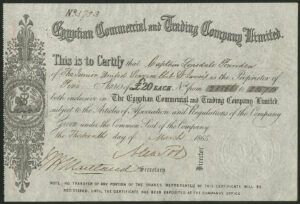 Egyptian Commercial and Trading Company Limited.
This is to Certify that Captain
of the Junior United Service Club St James is the Proprietor of
Five Shares of £20 EACH Nos from to
both inclusive in The Egyptian Commercial and Trading Company Limited,
subject to the Articles of Association and Regulations of the Company
Given under the Common Seal of the Company
the Thirteenth day of March 1865
Director
Secretary
NOTE. NO TRANSFER OF ANY PORTION OF THE SHARES REPRESENTED BY THIS CERTIFICATE WILL BE
REGISTERED, UNTIL THE CERTIFICATE HAS BEEN DEPOSITED AT THE COMPANY'S OFFICE.